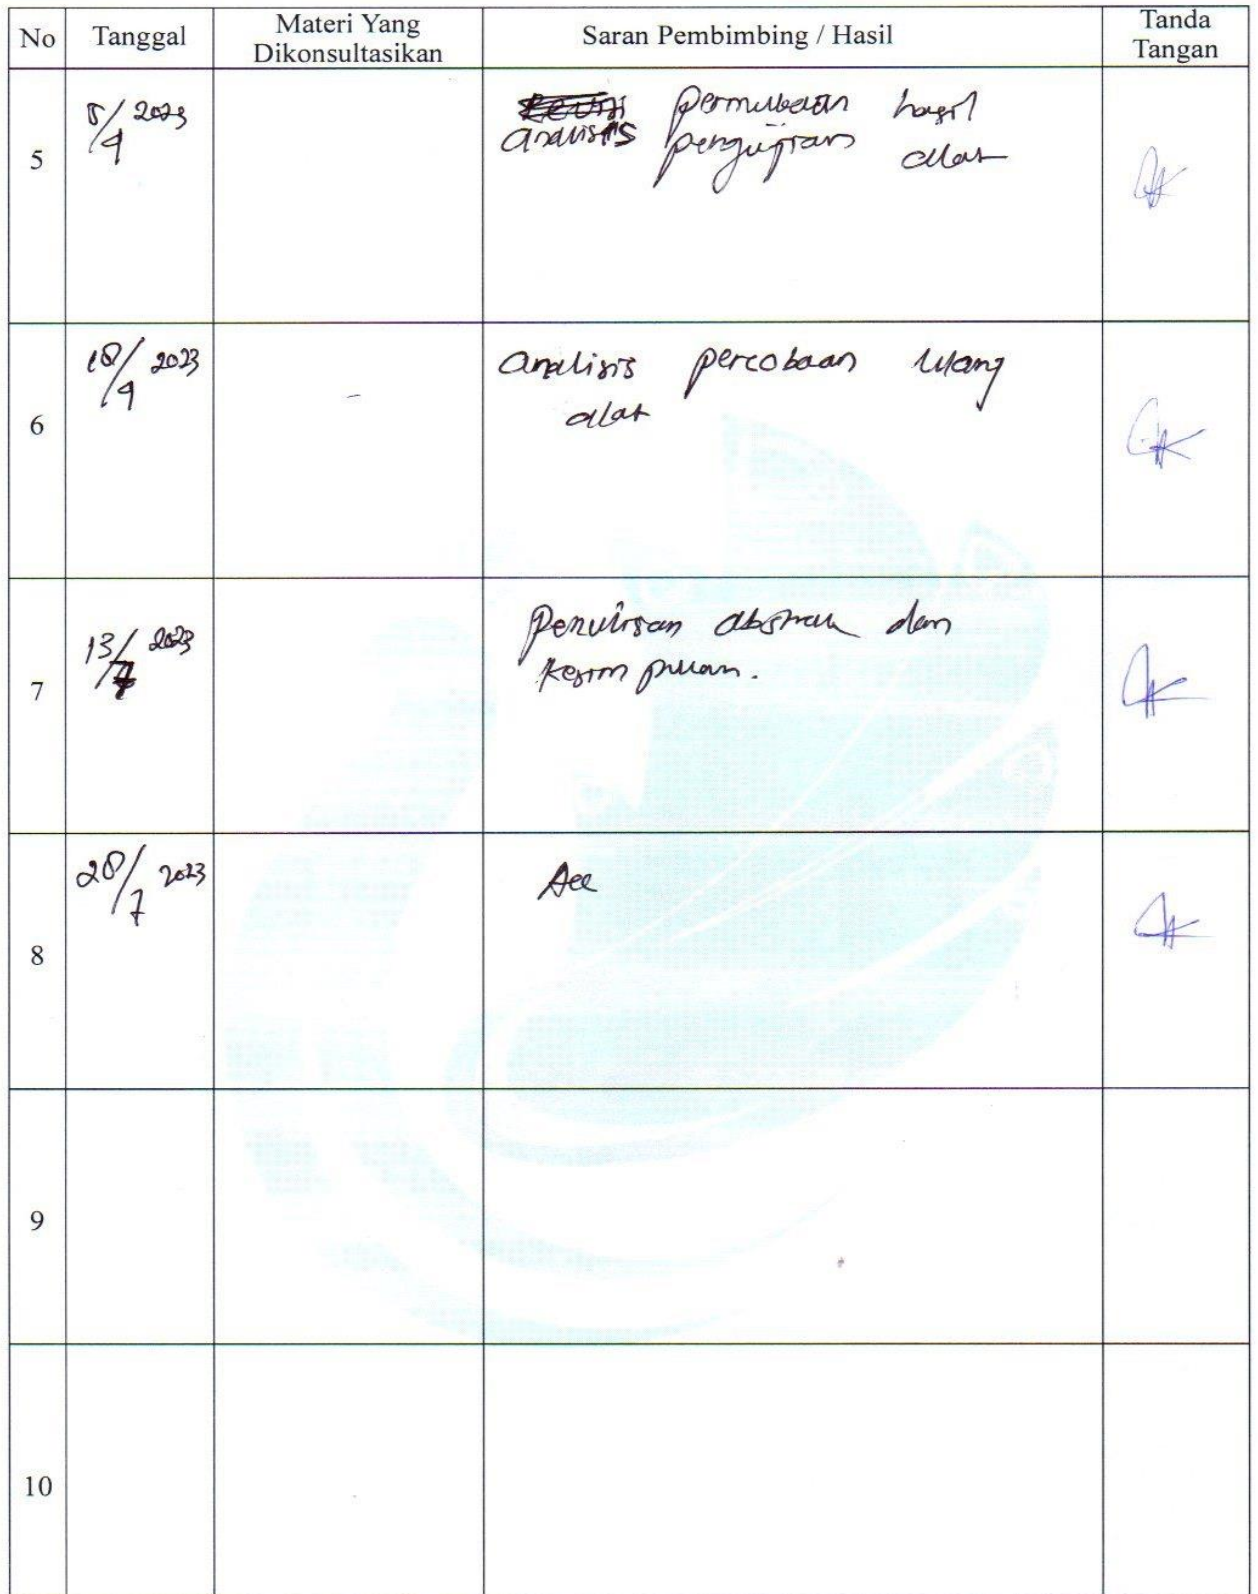 No Tanggal Materi Yang Dikonsultasikan Saran Pembimbing / Hasil Tanda Tangan
5 5/4 2023 analisis pengujian hasil alat
6 18/4 2023 - analisis percobaan ulang
alat
7 13/7 2023 Penulisan abstrak dan
Kesimpulan.
8 20/7 2023 Acc
9
10